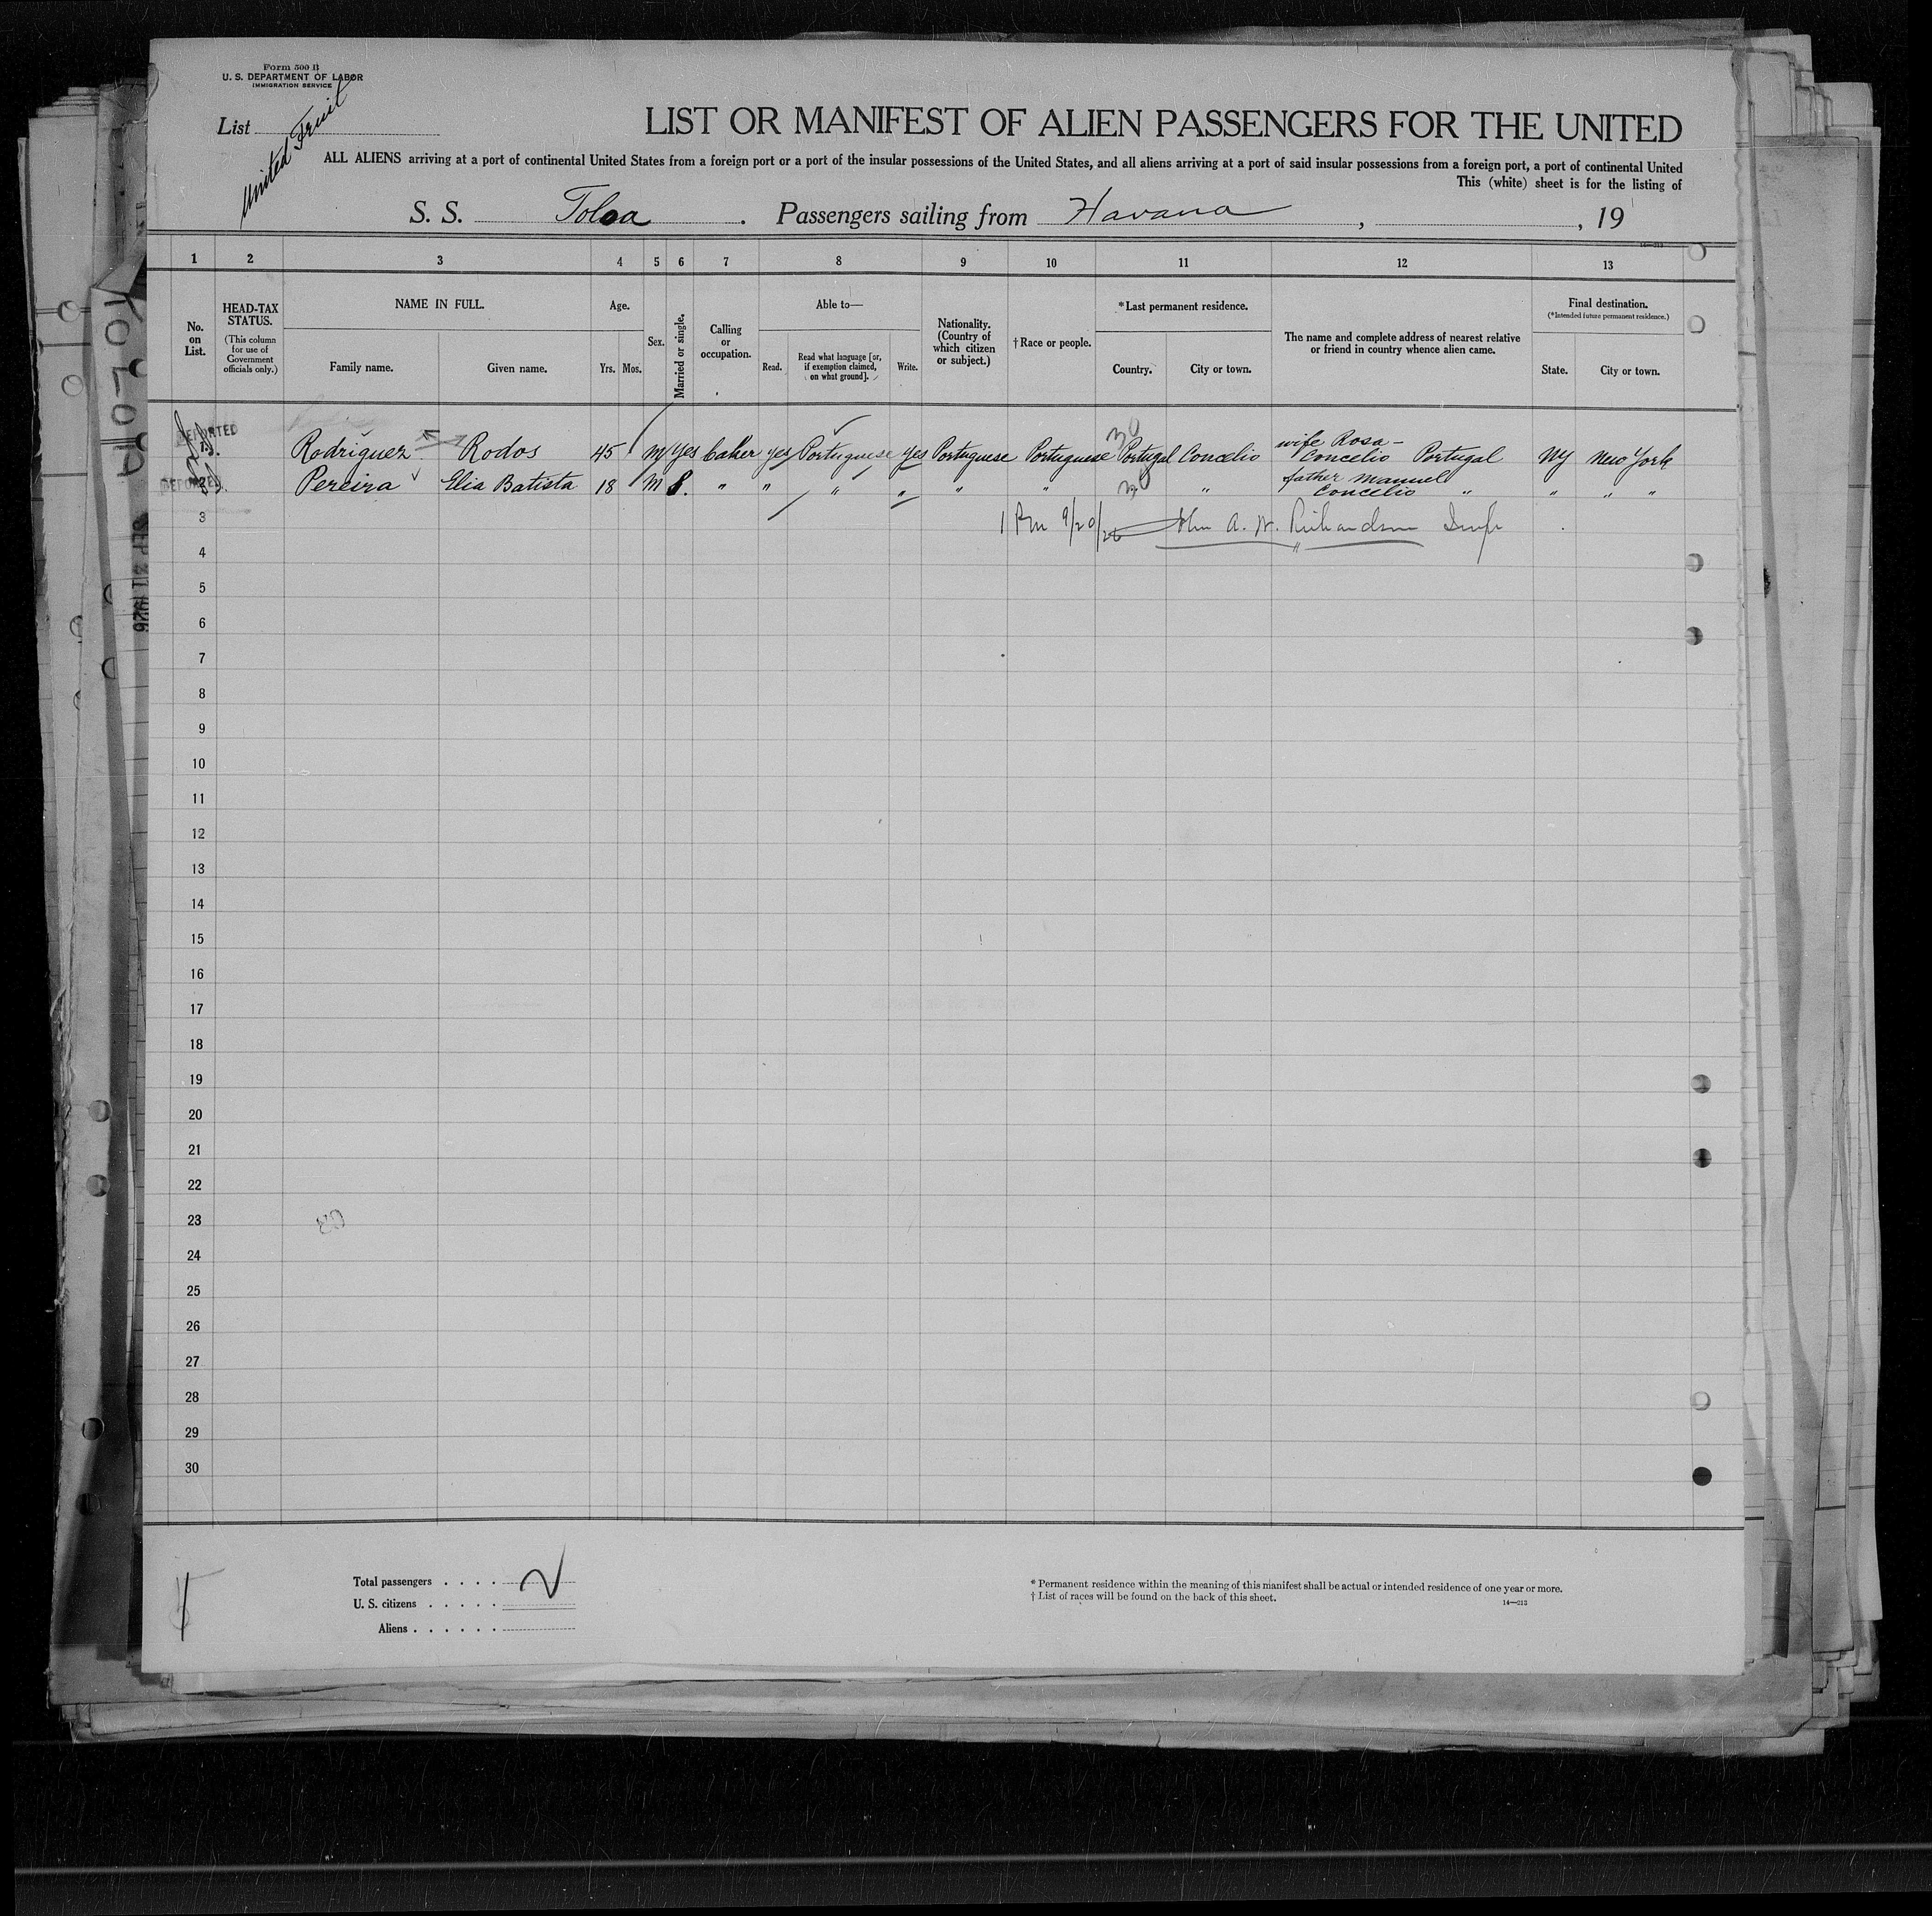 Form 500 B
U. S. DEPARTMENT OF LABOR
IMMIGRATION SERVICE
List
United Fruit
LIST OR MANIFEST OF ALIEN PASSENGERS FOR THE UNITED
ALL ALIENS arriving at a port of continental United States from a foreign port or a port of the insular possessions of the United States, and all aliens arriving at a port of said insular possessions from a foreign port, a port of continental United
This (white) sheet is for the listing of
S. S. Toloa . Passengers sailing from Havana , , 19
14—213
1 2 3 4 5 6 7 8 9 10 11 12 13
No. on List.
HEAD-TAX STATUS.
(This column for use of Government officials only.)
NAME IN FULL.
Family name. Given name.
Age.
Yrs. Mos.
Sex.
Married or single.
Calling or occupation.
Able to—
Read. Read what language [or, if exemption claimed, on what ground]. Write.
Nationality. (Country of which citizen or subject.)
† Race or people.
* Last permanent residence.
Country. City or town.
The name and complete address of nearest relative or friend in country whence alien came.
Final destination.
(* Intended future permanent residence.)
State. City or town.
DEPORTED
30
Rodriguez Rodos 45 M Yes baker yes Portuguese yes Portuguese Portuguese Portugal Concelio wife Rosa – Concelio Portugal NY New York
DEPORTED
30
Pereira Elia Batista 18 M S. " " " " " " " father Manuel Concelio " " " "
3
1 Pm 9/20/26 John A. W. Richardson Insp
4
5
6
7
8
9
10
11
12
13
14
15
16
17
18
19
20
21
22
23
24
25
26
27
28
29
30
Total passengers . . . . 2
U. S. citizens . . . . .
Aliens . . . . . .
* Permanent residence within the meaning of this manifest shall be actual or intended residence of one year or more.
† List of races will be found on the back of this sheet.
14—213
TOLOA
SEP 21 1926